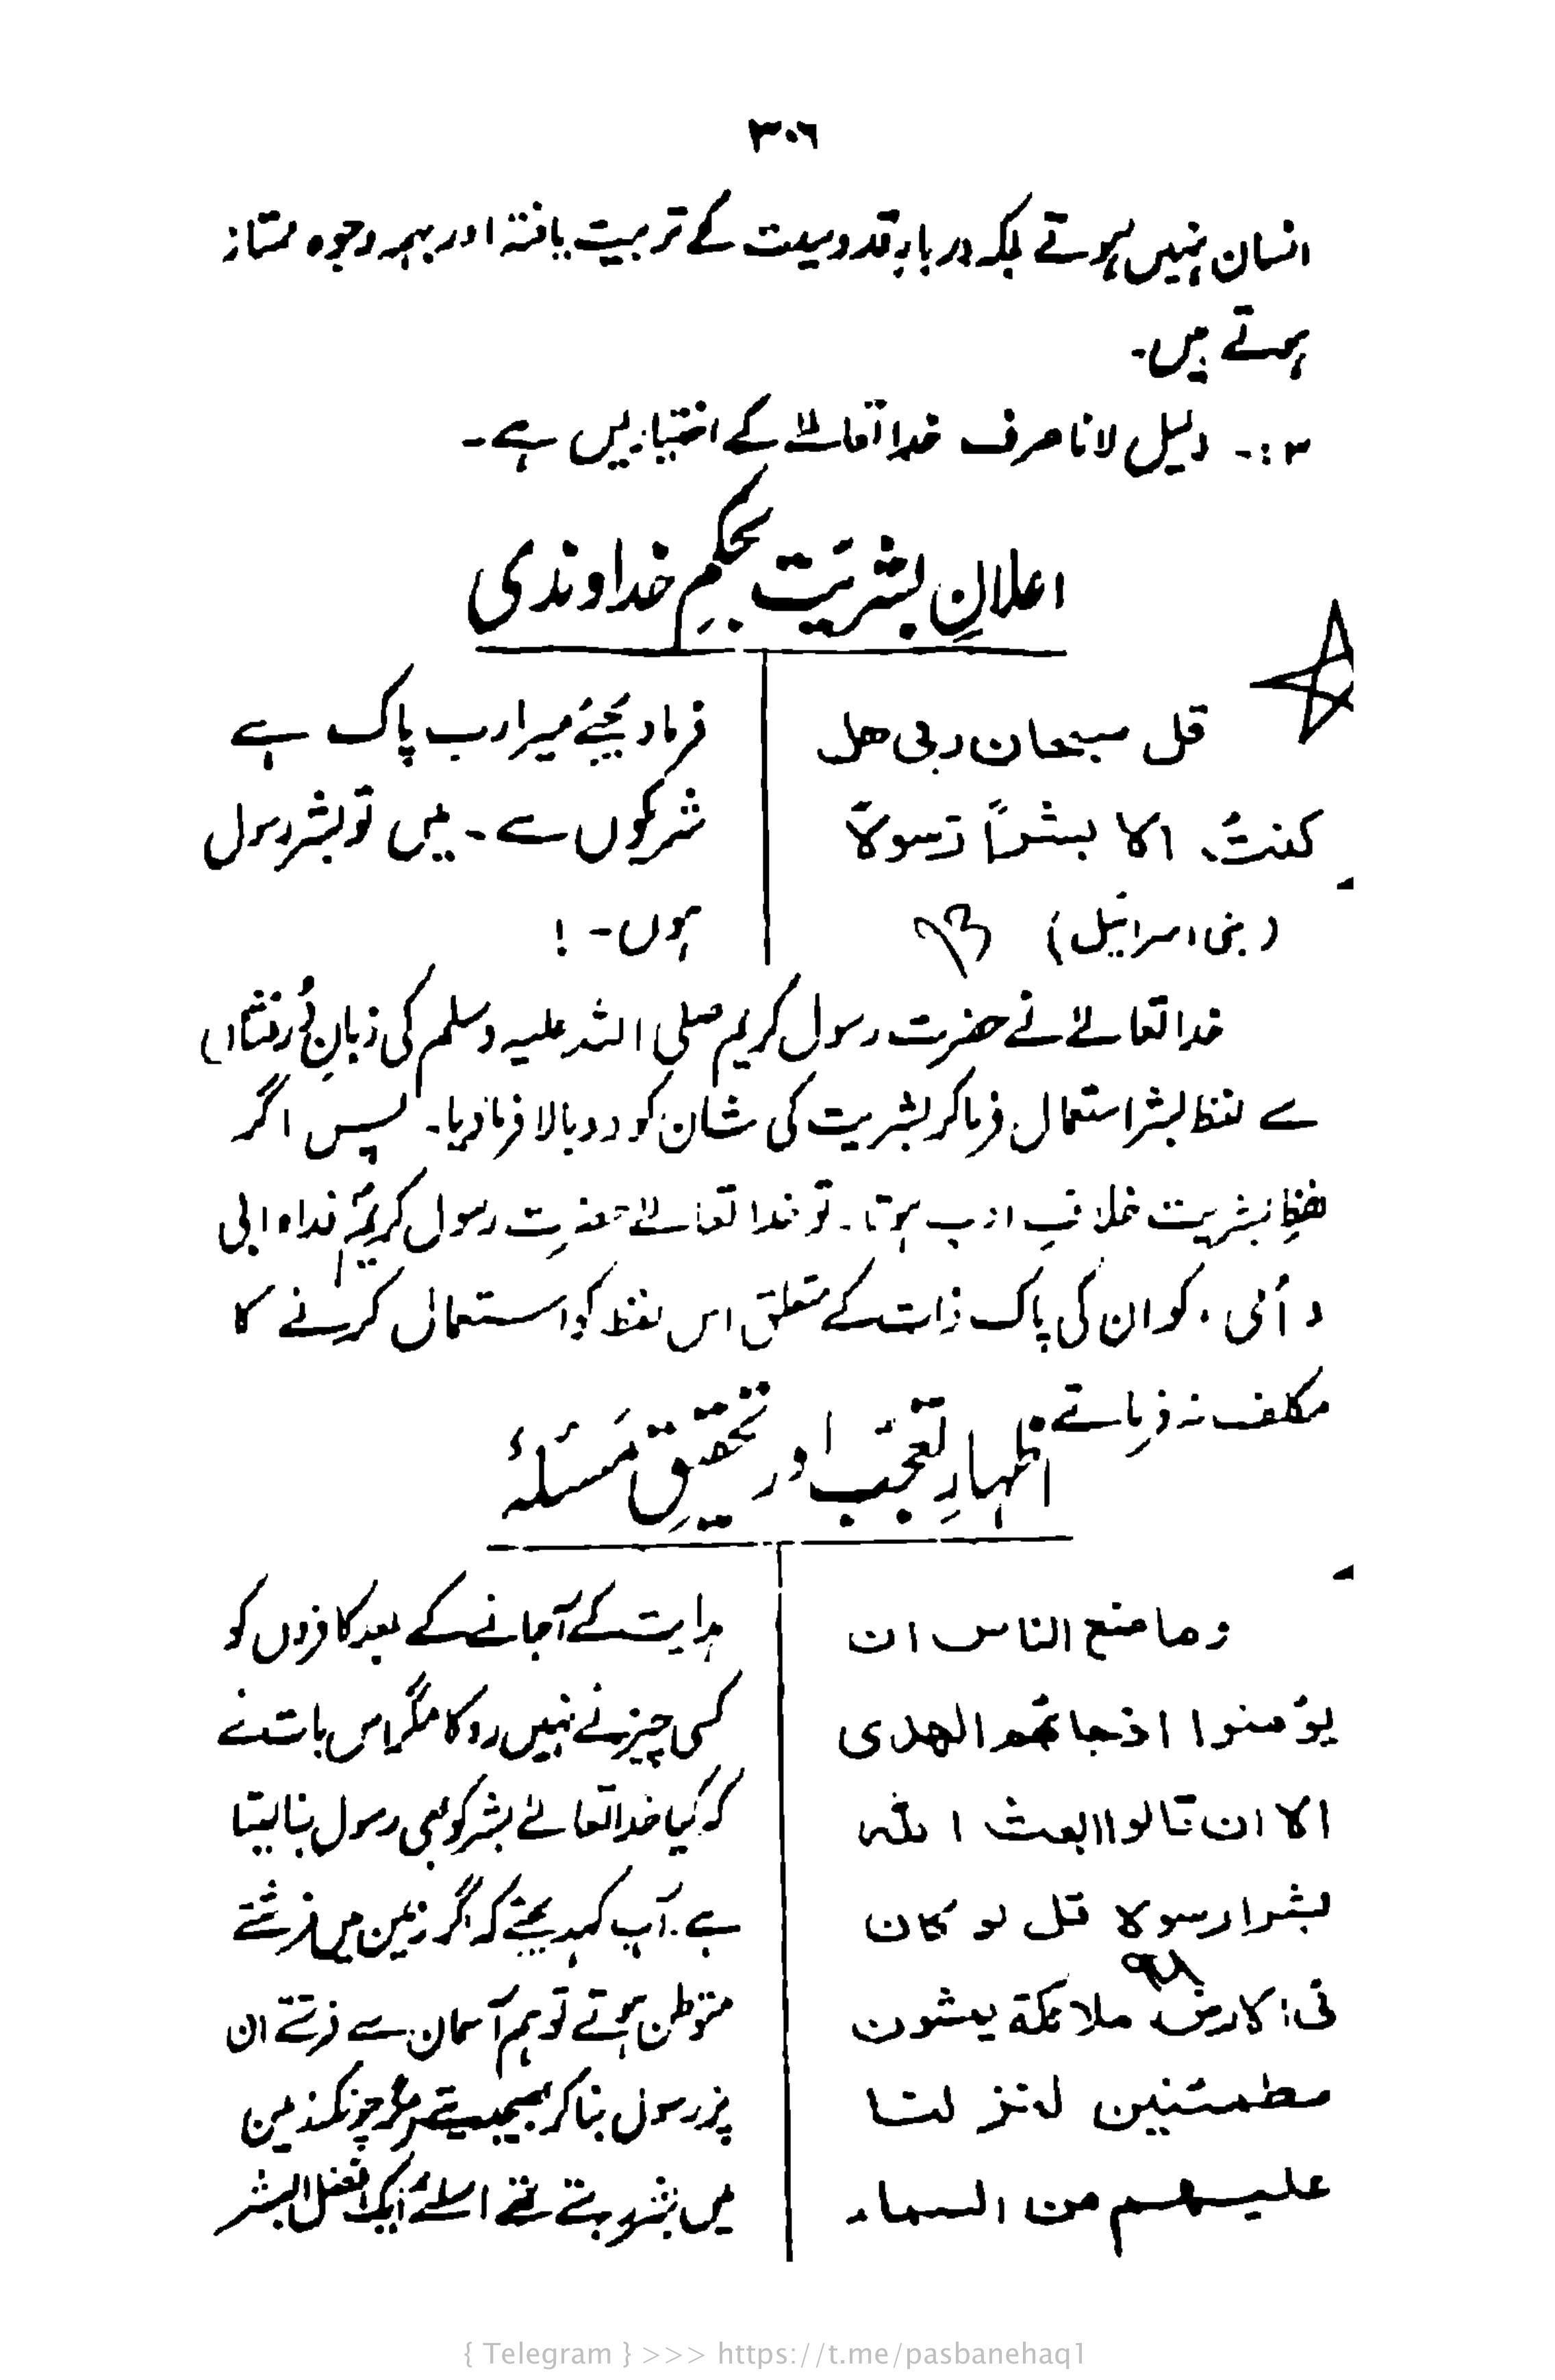 ٣٠٦
انسان نہیں ہوتے بلکہ دربارِ قدوسیت کے تربیت یافتہ اور بہمہ وجوہ ممتاز
ہوتے ہیں۔
۳:۔ دلیل لانا صرف خدا تعالےٰ کے اختیار میں ہے۔
اعلانِ بشریَت بحکمِ خداوندی
قل سبحان ربی هل
كنتُ الا بشراً رّسولاً
(بنی اسرائیل) ٩٣
فرما دیجئے میرا رب پاک ہے
شرکوں سے۔ میں تو بشر رسول
ہوں۔!
خدا تعالےٰ نے حضرت رسول کریم صلی اللہ علیہ وسلم کی زبانِ دُرفشاں
سے لفظ بشر استعمال فرما کر بشریت کی شان کو دوبالا فرما دیا۔ پس اگر
لفظِ بشریت خلافِ ادب ہوتا۔ تو خدا تعالےٰ حضرت رسول کریمؐ فداہ ابی
و اُمی، کو ان کی پاک ذات کے متعلق اس لفظ کو استعمال کرنے کا
مکلف نہ فرماتے
اظہارِ تعجّب اور تحقیقِ مَسئلہٴ
وما منع الناس ان
يؤمنوا اذ جاءهم الهدى
الا ان قالوا ابعث الله
بشرا رسولا قل لو كان ٩٤
فی الارض ملائكة يمشون
مطمئنين لنزلنا
عليهم من السماء
ہدایت کے آجانے کے بعد کافروں کو
کسی چیز نے نہیں روکا مگر اس بات نے
کہ کیا خدا تعالےٰ بشر کو بھی رسول بنا لیتا
ہے۔ آپ کہدیجئے کہ اگر زمین میں فرشتے
متوطن ہوتے تو ہم آسمان سے فرشتے ان
پر رسول بنا کر بھیجتے مگر چونکہ زمین
میں بشر بستے تھے اسلئے ایک افضل البشر
{ Telegram } >>> https://t.me/pasbanehaq1